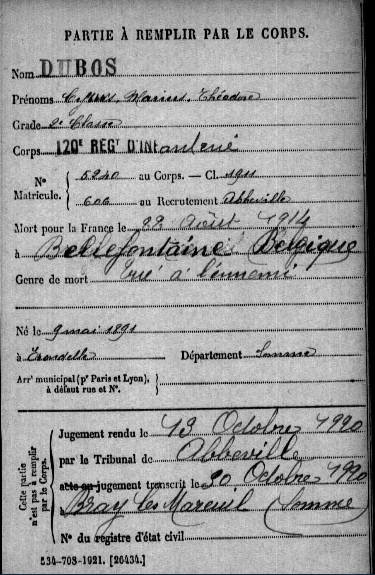 PARTIE À REMPLIR PAR LE CORPS.
Nom DUBOS
Prénoms Marius, Théodore
Grade 2e Classe
Corps 120E REGT D'Infanterie
No Matricule. 5240 au Corps. — Cl. 1911
606 au Recrutement Abbeville
Mort pour la France le 22 Août 1914
à Bellefontaine Belgique
Genre de mort tué à l'ennemi
Né le 9 mai 1891
à Erondelle Département Somme
Arrt municipal (pr Paris et Lyon), à défaut rue et No.
Cette partie n'est pas à remplir par le Corps.
Jugement rendu le 13 Octobre 1920
par le Tribunal de Abbeville
acte ou jugement transcrit le 20 Octobre 1920
à Bray les Mareuil Somme
No du registre d'état civil
534-708-1921. [26434.]